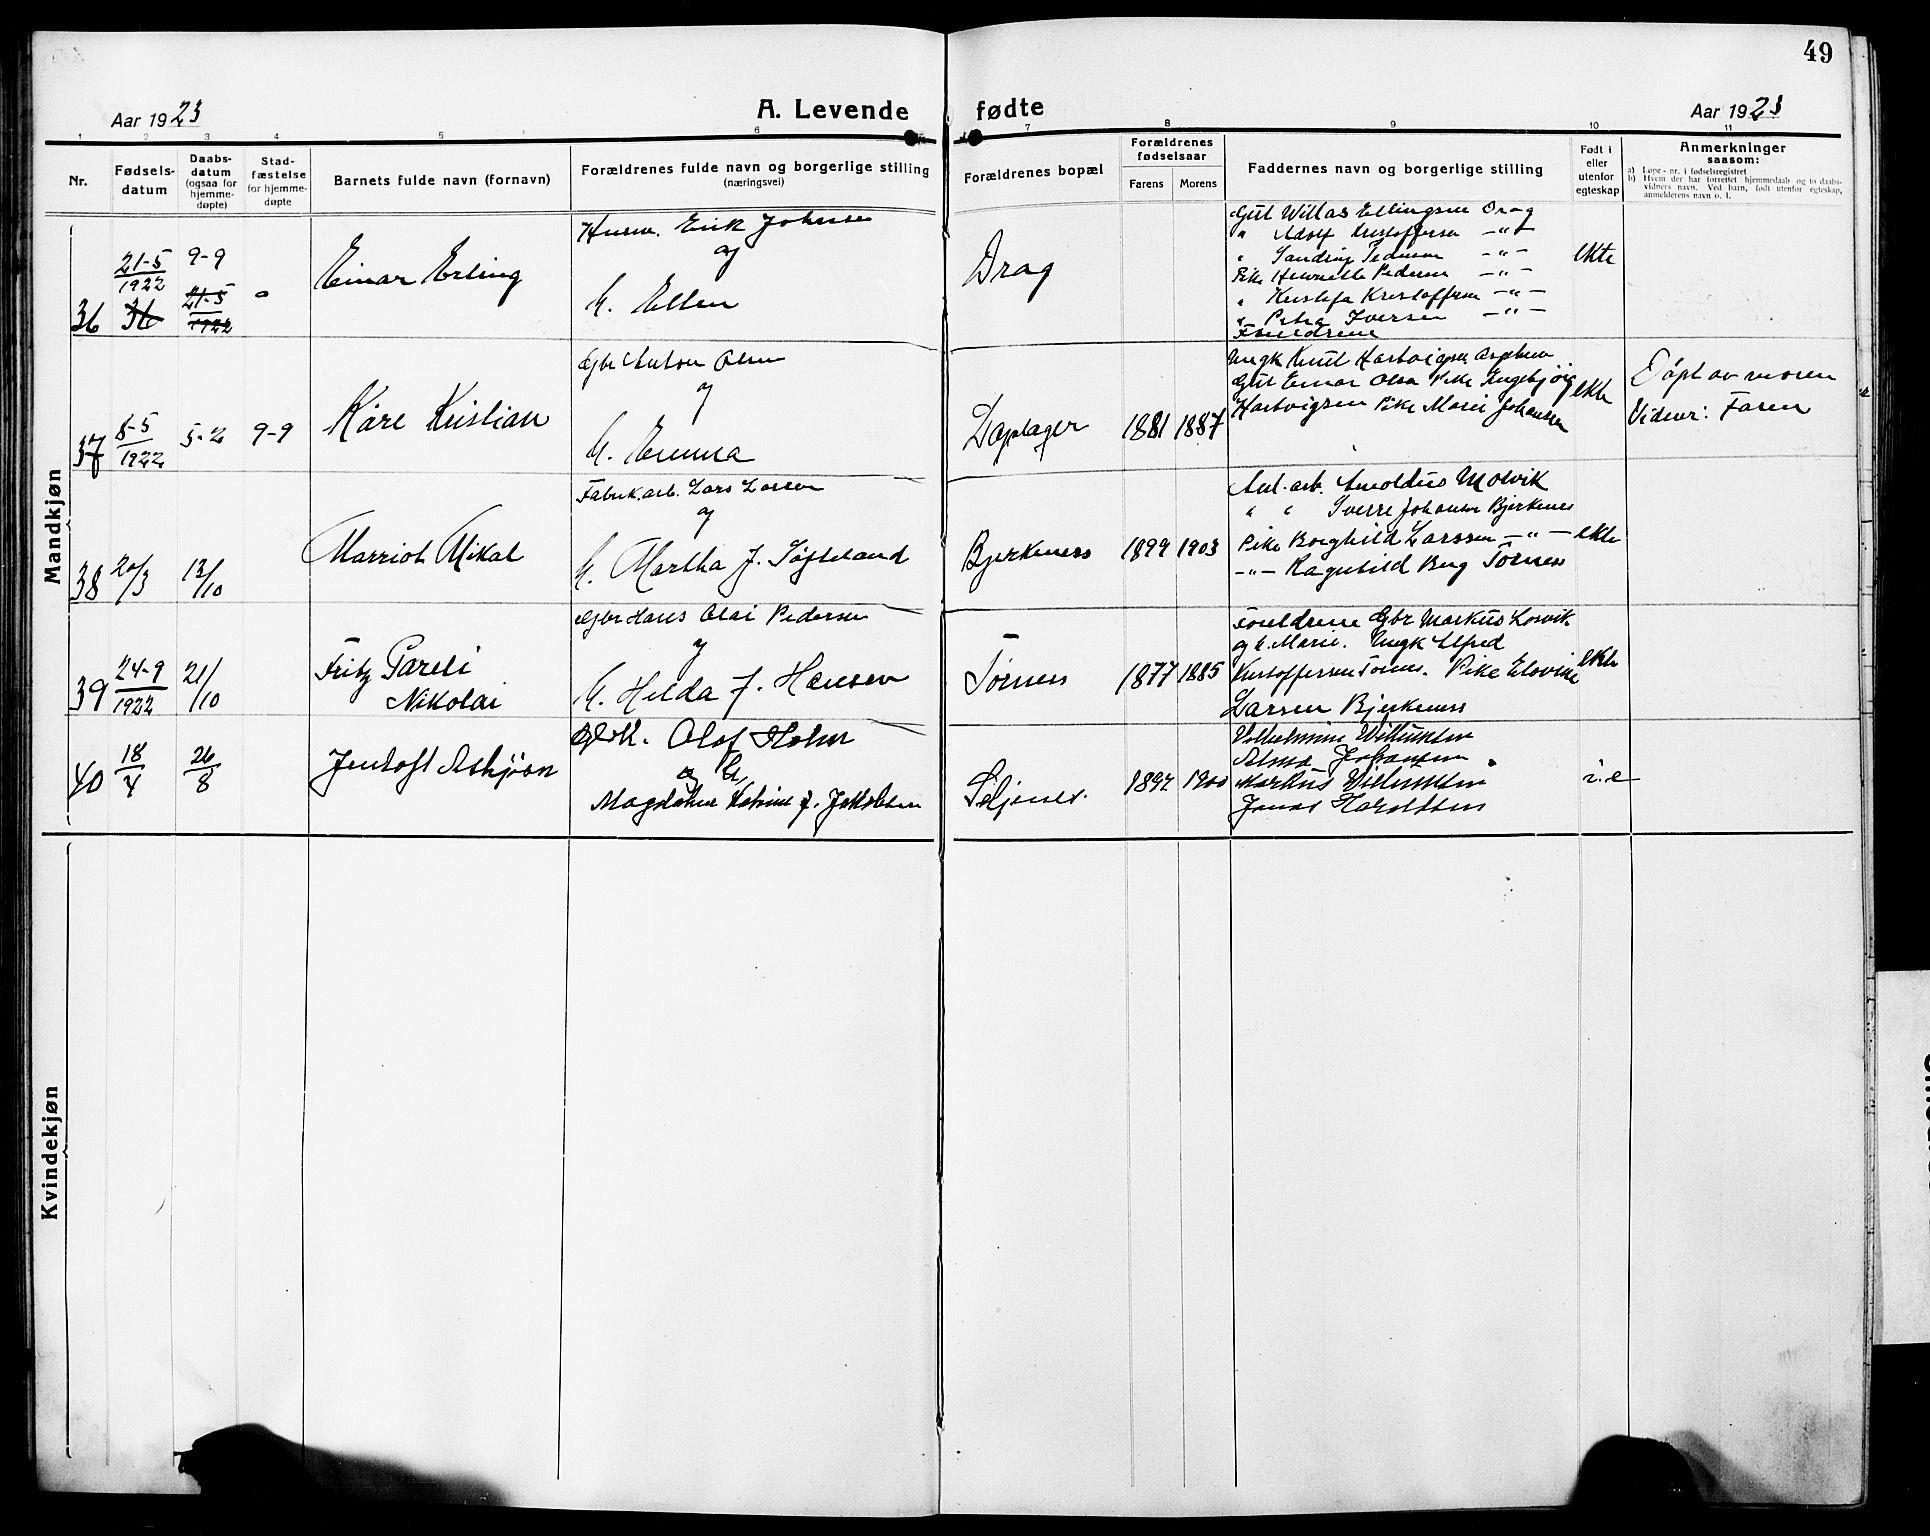 49
Aar 1923
A. Levende
fødte
Aar 1923
1 2 3 4 5 6 7 8 9 10 11
Nr.
Fødsels-
datum
Daabs-
datum
(ogsaa for
hjemme-
døpte)
Stad-
fæstelse
for hjemme-
døpte
Barnets fulde navn (fornavn)
Forældrenes fulde navn og borgerlige stilling
(næringsvei)
Forældrenes bopæl
Forældrenes
fødselsaar
Farens Morens
Faddernes navn og borgerlige stilling
Født i
eller
utenfor
egteskap
Anmerkninger
saasom:
a) Løpe-nr. i fødselsregistret
b) Hvem der har forrettet hjemmedaab og to daabs-
vidners navn. Ved barn, født utenfor egteskap,
anmelderens navn o. l.
Mandkjøn
36
21-5
1922
36
9-9
21-5
1922
Einar Erling
Husm. Erik Johnsen
og
h. Ellen
Drag
Gut Willas Ellingsen Drag
" Adolf Kristoffersen -"-
" Sandrup Pedersen -"-
Pike Henriette Pedersen -"-
" Kristofa Kristoffersen -"-
" Petra Iversen -"-
Foreldrene
ekte
37
8-5
1922
5-2
9-9
Kåre Kristian
Gbr Anton Olsen
og
h. Emma
1881 1887
Ungk Knut Hartvigsen
Gut Einar Olsen Pike Ingebjørg
Hartvigsen Pike Marie Johansen
ekte
Døpt av moren
Vidner: Faren
38
20/3
13/10
Marriot Mikal
Fabrik.arb. Lars Larsen
og
h. Martha f. Søfteland
Bjerkenes
1899 1903
Anl. arb. Arnoldus Molvik
" " Sverre Johansen Bjerkenes
Pike Borghild Larssen -"-
-"- Ragnhild Berg Tornes
ekte
39
24-9
1922
21/10
Fritz Pareli
Nikolai
Gbr Hans Olai Pedersen
og
h. Hilda f. Hansen
Tornes
1877 1885
Foreldrene Gbr Markus Losvik
og h. Marie. Ungk Alfred
Kristoffersen Tornes. Pike Elovine
Larsen Bjerkenes
ekte
40
18
4
26
8
Jentoft Asbjørn
Olaf Holm
og h.
Magdalene Katrine f. Jakobsen
Seljenes.
1897 1900
Vilhelmine Willumsen
Alma Johansen
Markus Willumsen
Jonas Haraldsen
i. e
Kvindekjøn